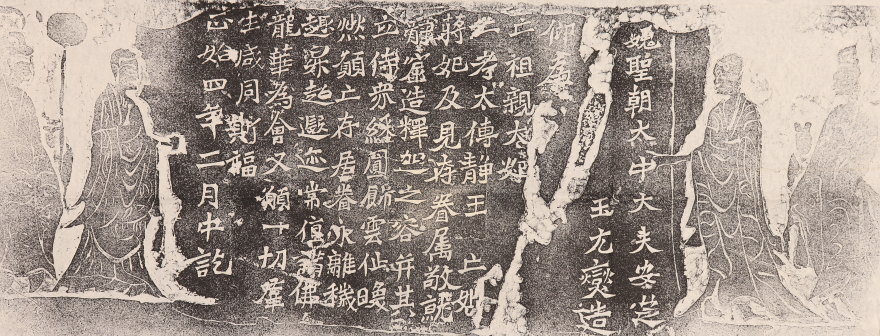 魏聖朝太中大夫安定
王元燮造
仰為
亡祖親太妃
亡考太傅靜王 亡妣
蔣妃及見存眷屬敬就
靜窟造釋迦之容并其
立侍眾綵圓飾雲仙煥
然願亡存居眷永離穢
趣昇超遐迹常值諸佛
龍華為會又願一切群
生咸同斯福
正始四年二月中訖